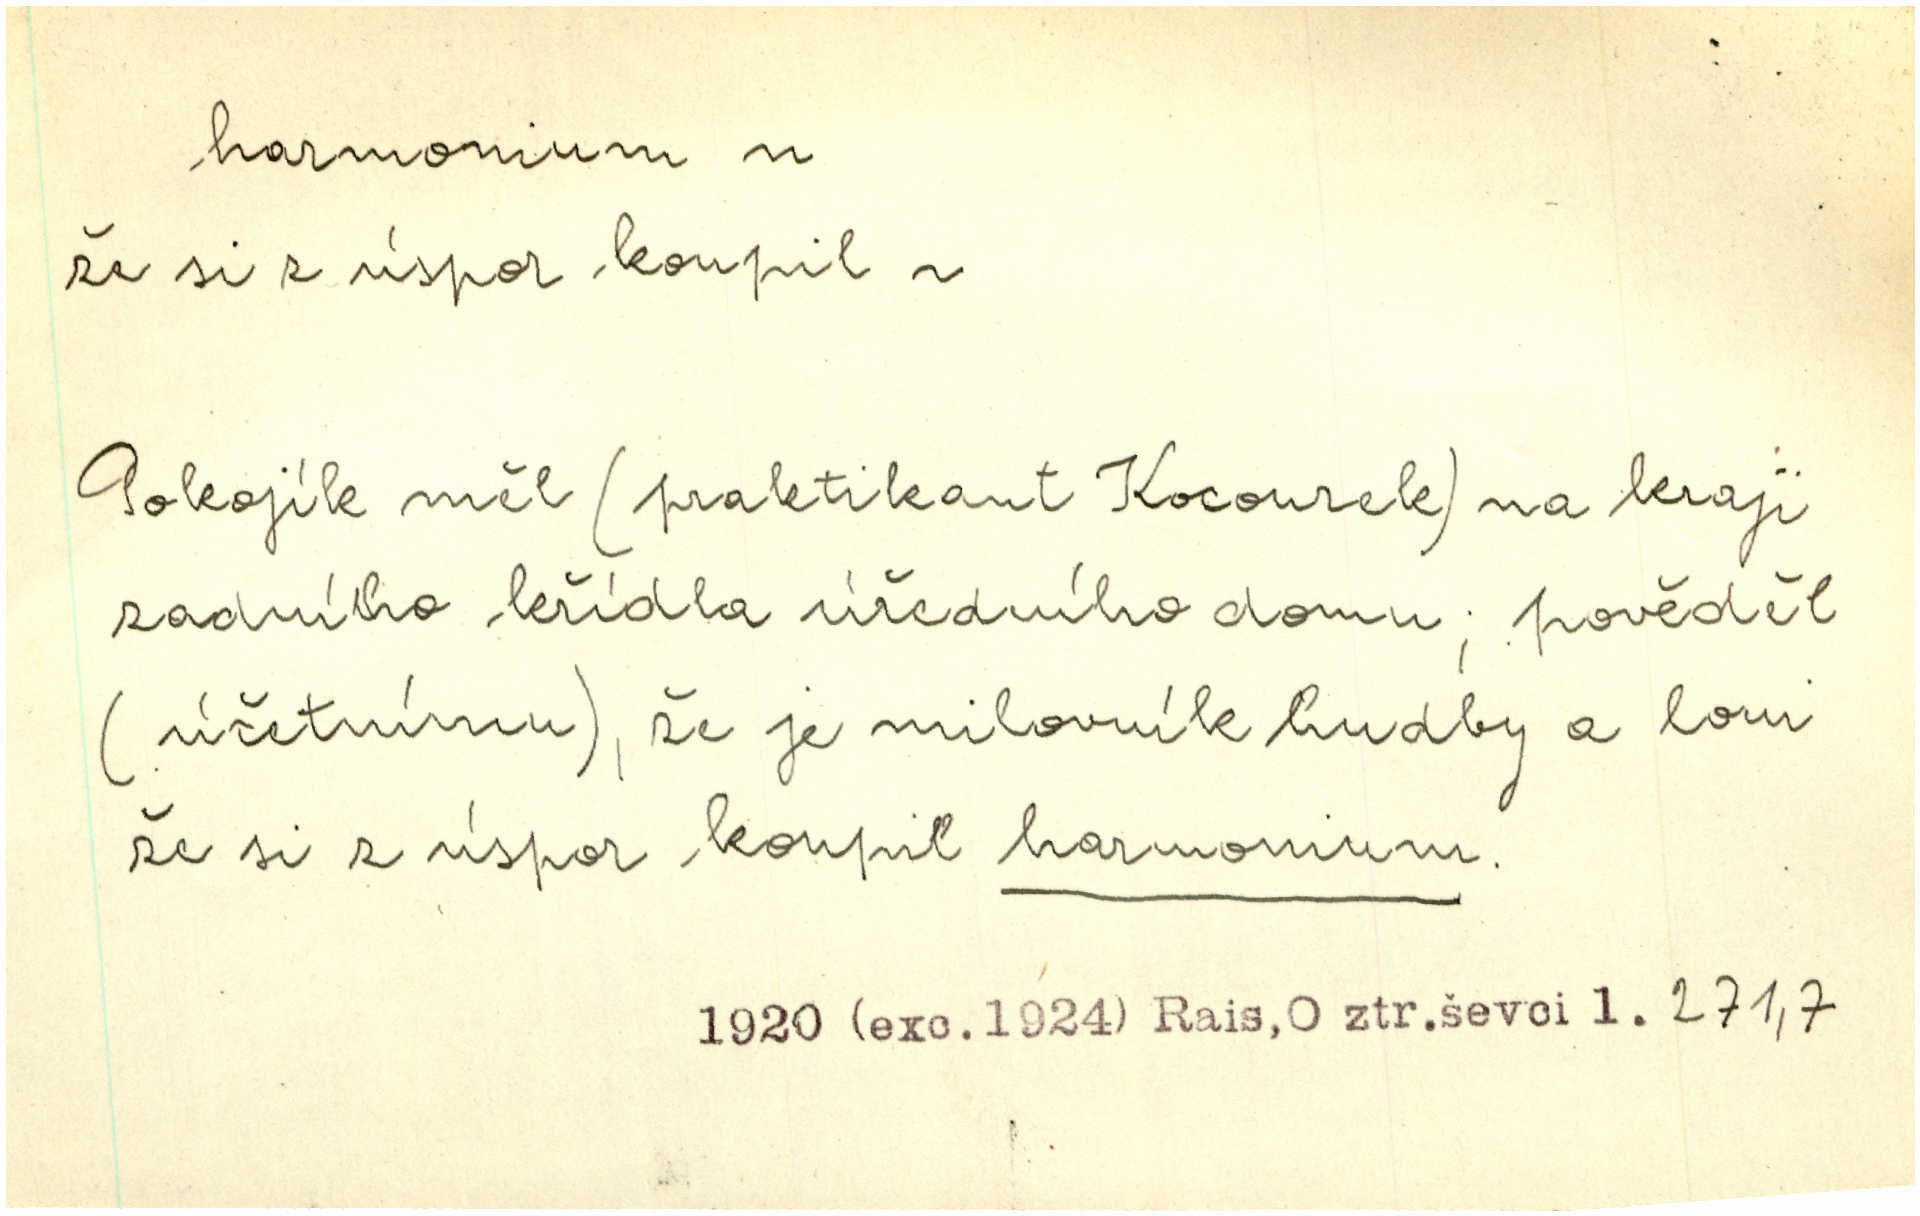 harmonium n
že si z úspor koupil ~
Pokojík měl (praktikant Kocourek) na kraji
zadního křídla úředního domu; pověděl
(účetnímu), že je milovník hudby a loni
že si z úspor koupil harmonium.
1920 (exc.1924) Rais,O ztr.ševci 1. 271,7